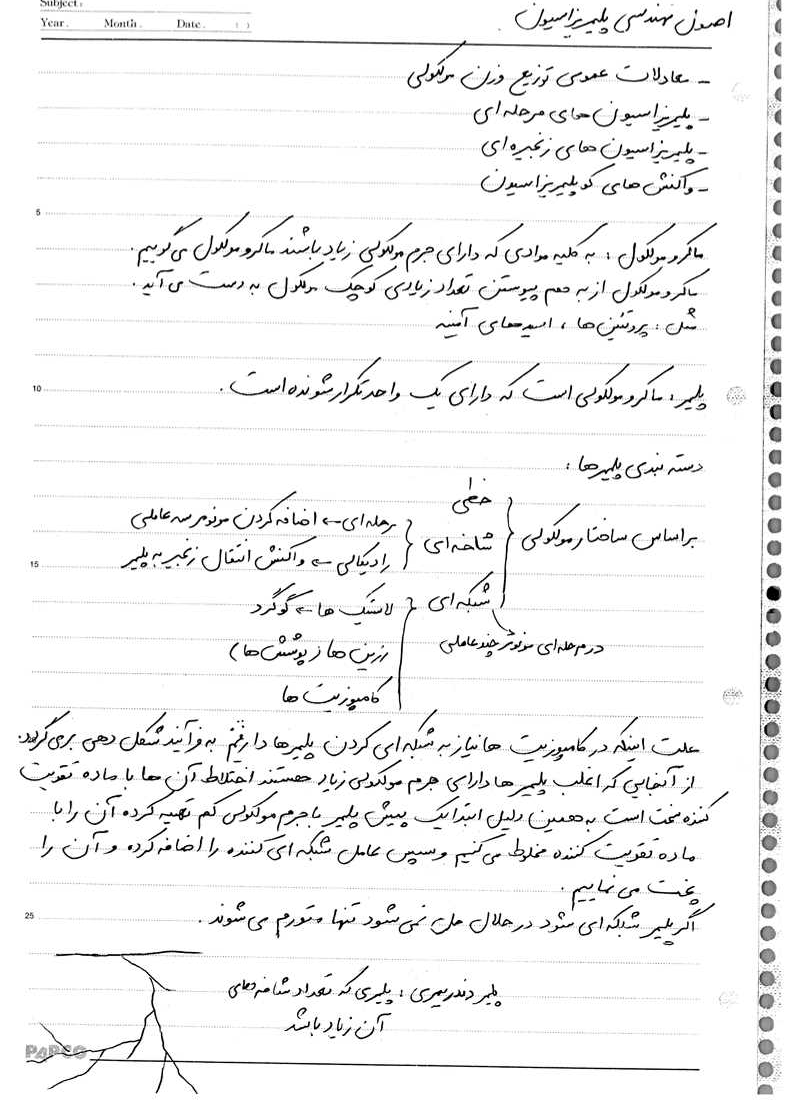 Subject:
Year. Month. Date. ( )
اصول مهندسی پلیمریزاسیون
- معادلات عمومی توزیع وزن مولکولی
- پلیمریزاسیون های مرحله ای
- پلیمریزاسیون های زنجیره ای
- واکنش های کوپلیمریزاسیون
5
ماکرومولکول : به کلیه موادی که دارای جرم مولکولی زیاد باشند ماکرومولکول می گوییم .
ماکرومولکول از به هم پیوستن تعداد زیادی کوچک مولکول به دست می آید .
مثل : پروتئین ها ، اسیدهای آمینه
10
پلیمر : ماکرومولکولی است که دارای یک واحد تکرار شونده است .
دسته بندی پلیمرها :
براساس ساختار مولکولی
خطی
شاخه ای
مرحله ای ← اضافه کردن مونومر سه عاملی
رادیکالی ← واکنش انتقال زنجیر به پلیمر
15
شبکه ای
لاستیک ها ← گوگرد
درمرحله ای مونومر چند عاملی
رزین ها (پوشش ها)
کامپوزیت ها
علت اینکه در کامپوزیت ها نیاز به شبکه ای کردن پلیمرها داریم به فرآیند شکل دهی برمی گردد.
از آنجایی که اغلب پلیمر ها دارای جرم مولکولی زیاد هستند اختلاط آن ها با ماده تقویت
کننده سخت است به همین دلیل ابتدا یک پیش پلیمر با جرم مولکولی کم تهیه کرده آن را با
ماده تقویت کننده مخلوط می کنیم و سپس عامل شبکه ای کننده را اضافه کرده و آن را
پخت می نماییم .
25
اگر پلیمر شبکه ای شود در حلال حل نمی شود تنها متورم می شوند .
پلیمر دندریمری : پلیمری که تعداد شاخه های
آن زیاد باشد
PAPCO